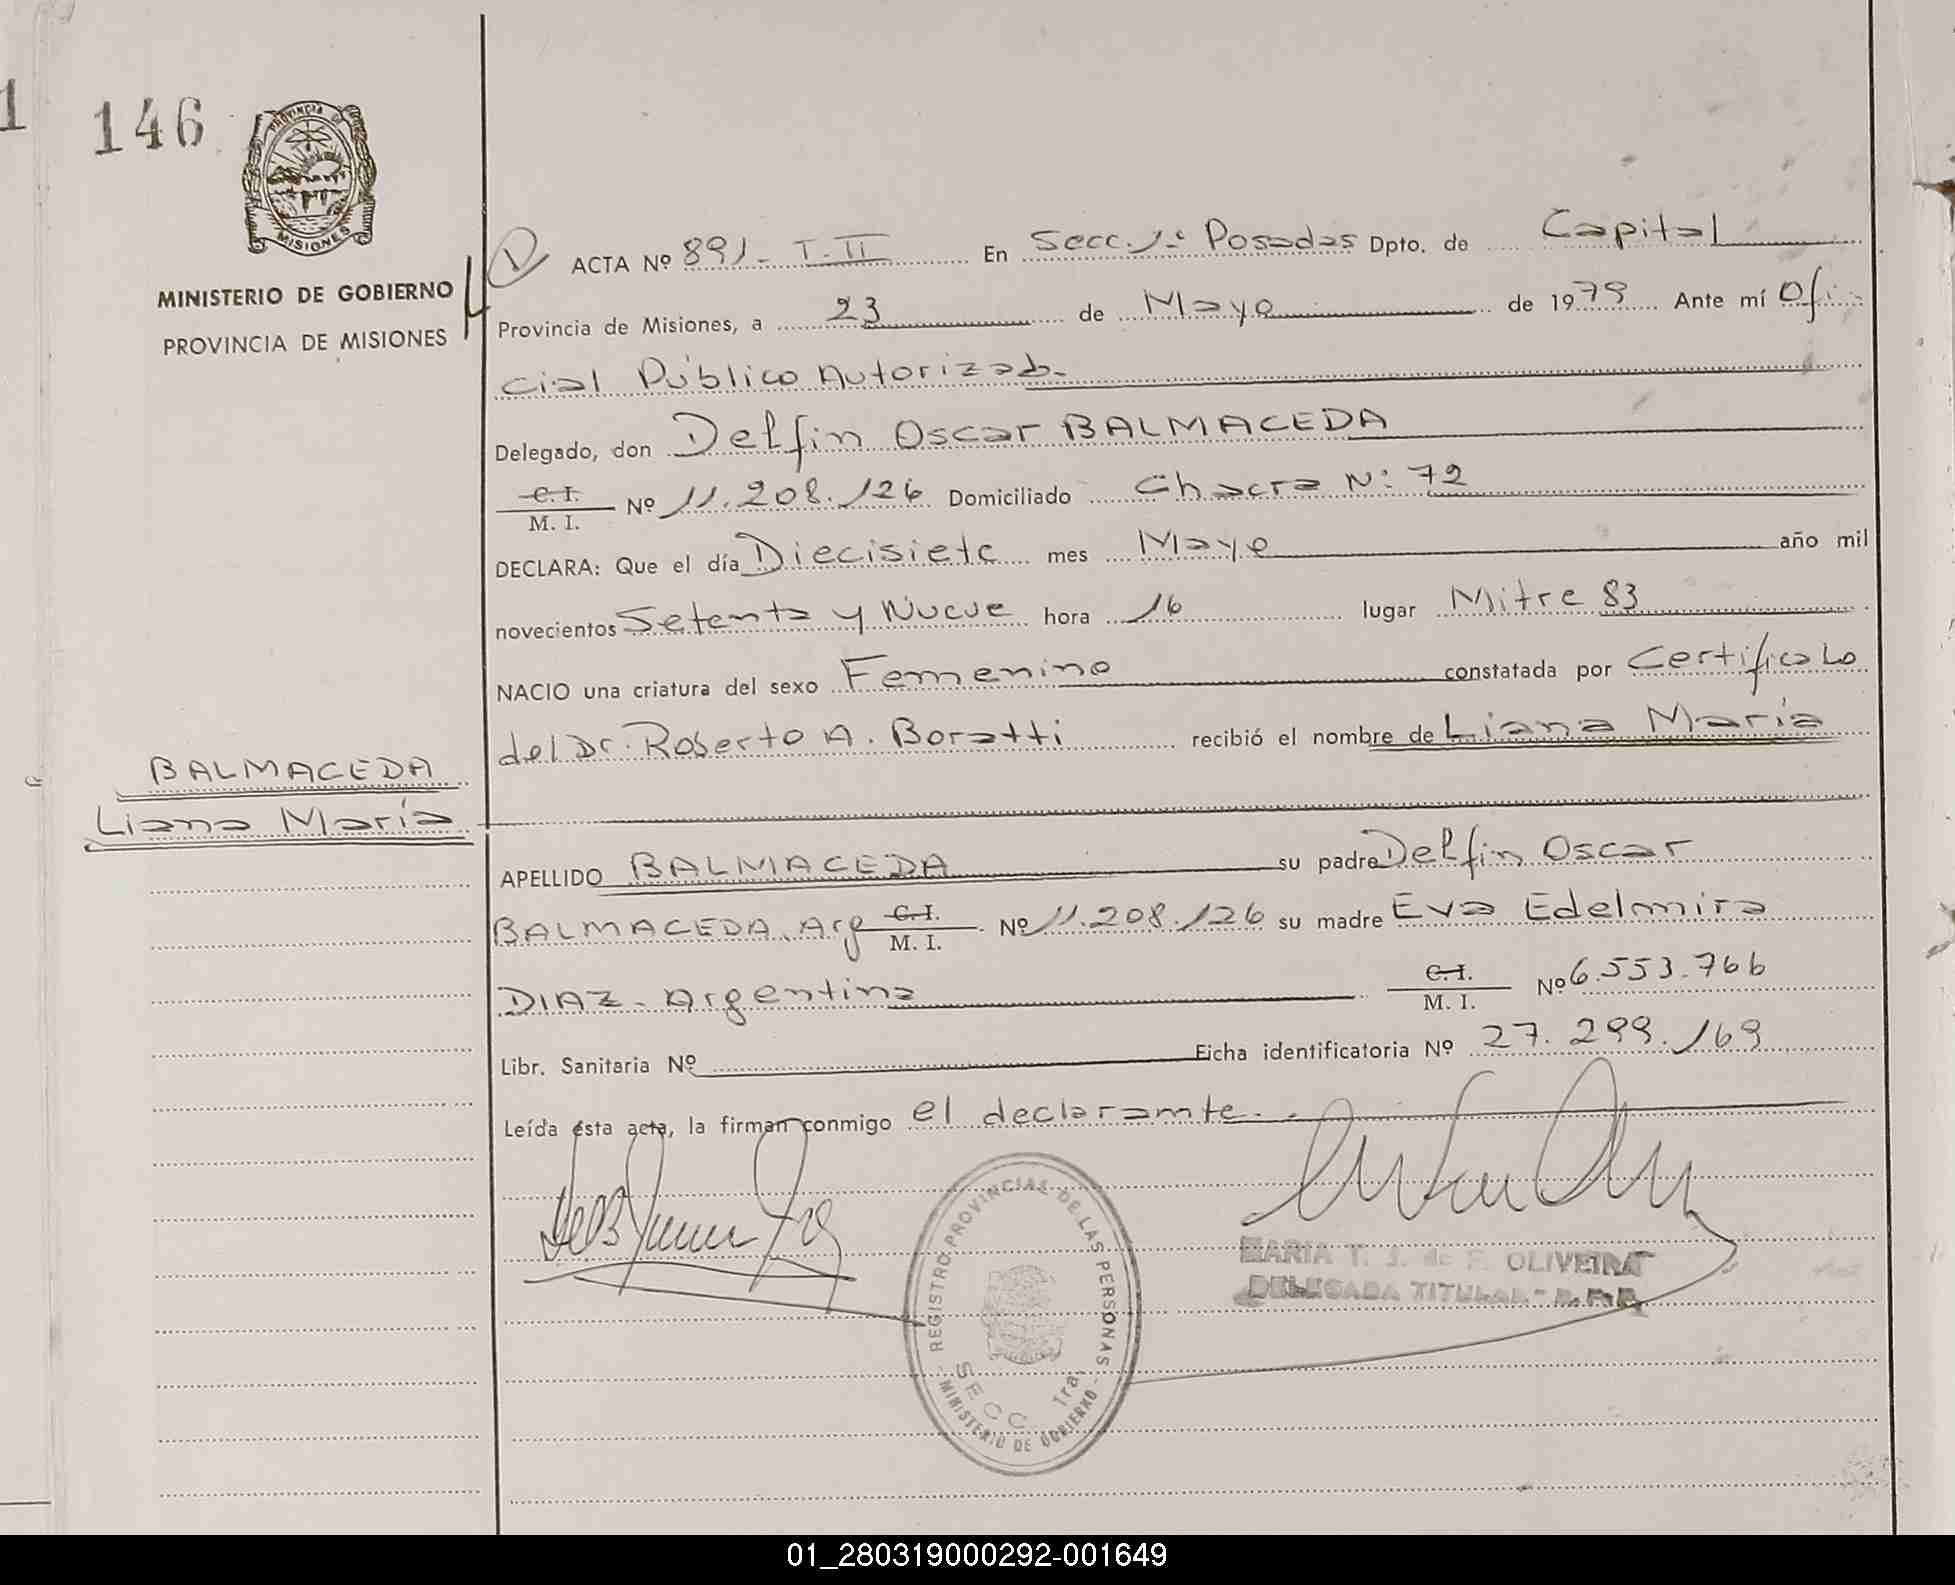 1
146
PROVINCIA DE
MISIONES
MINISTERIO DE GOBIERNO
PROVINCIA DE MISIONES
ACTA Nº 891- T-II En Secc. 1ª Posadas Dpto. de Capital
Provincia de Misiones, a 23 de Mayo de 1979 Ante mí Ofi-
cial Público Autorizado-
Delegado, don Delfin Oscar BALMACEDA
C. I.
M. I. Nº 11.208.126 Domiciliado Chacra Nº 72
DECLARA: Que el día Diecisiete mes Mayo año mil
novecientos Setenta y Nueve hora 16 lugar Mitre 83
NACIO una criatura del sexo Femenino constatada por Certificado
del Dr. Roberto A. Boratti recibió el nombre de Liana María
BALMACEDA
Liana María
APELLIDO BALMACEDA su padre Delfin Oscar
BALMACEDA, Arg C. I.
M. I. Nº 11.208.126 su madre Eva Edelmira
DIAZ- Argentina C. I.
M. I. Nº 6.553.766
Libr. Sanitaria Nº Ficha identificatoria Nº 27.299.169
Leída ésta acta, la firman conmigo el declarante.-
REGISTRO PROVINCIAL DE LAS PERSONAS
SECC 1ra
- MINISTERIO DE GOBIERNO -
MARIA T. J. de F. OLIVEIRA
DELEGADA TITULAR -
01_280319000292-001649